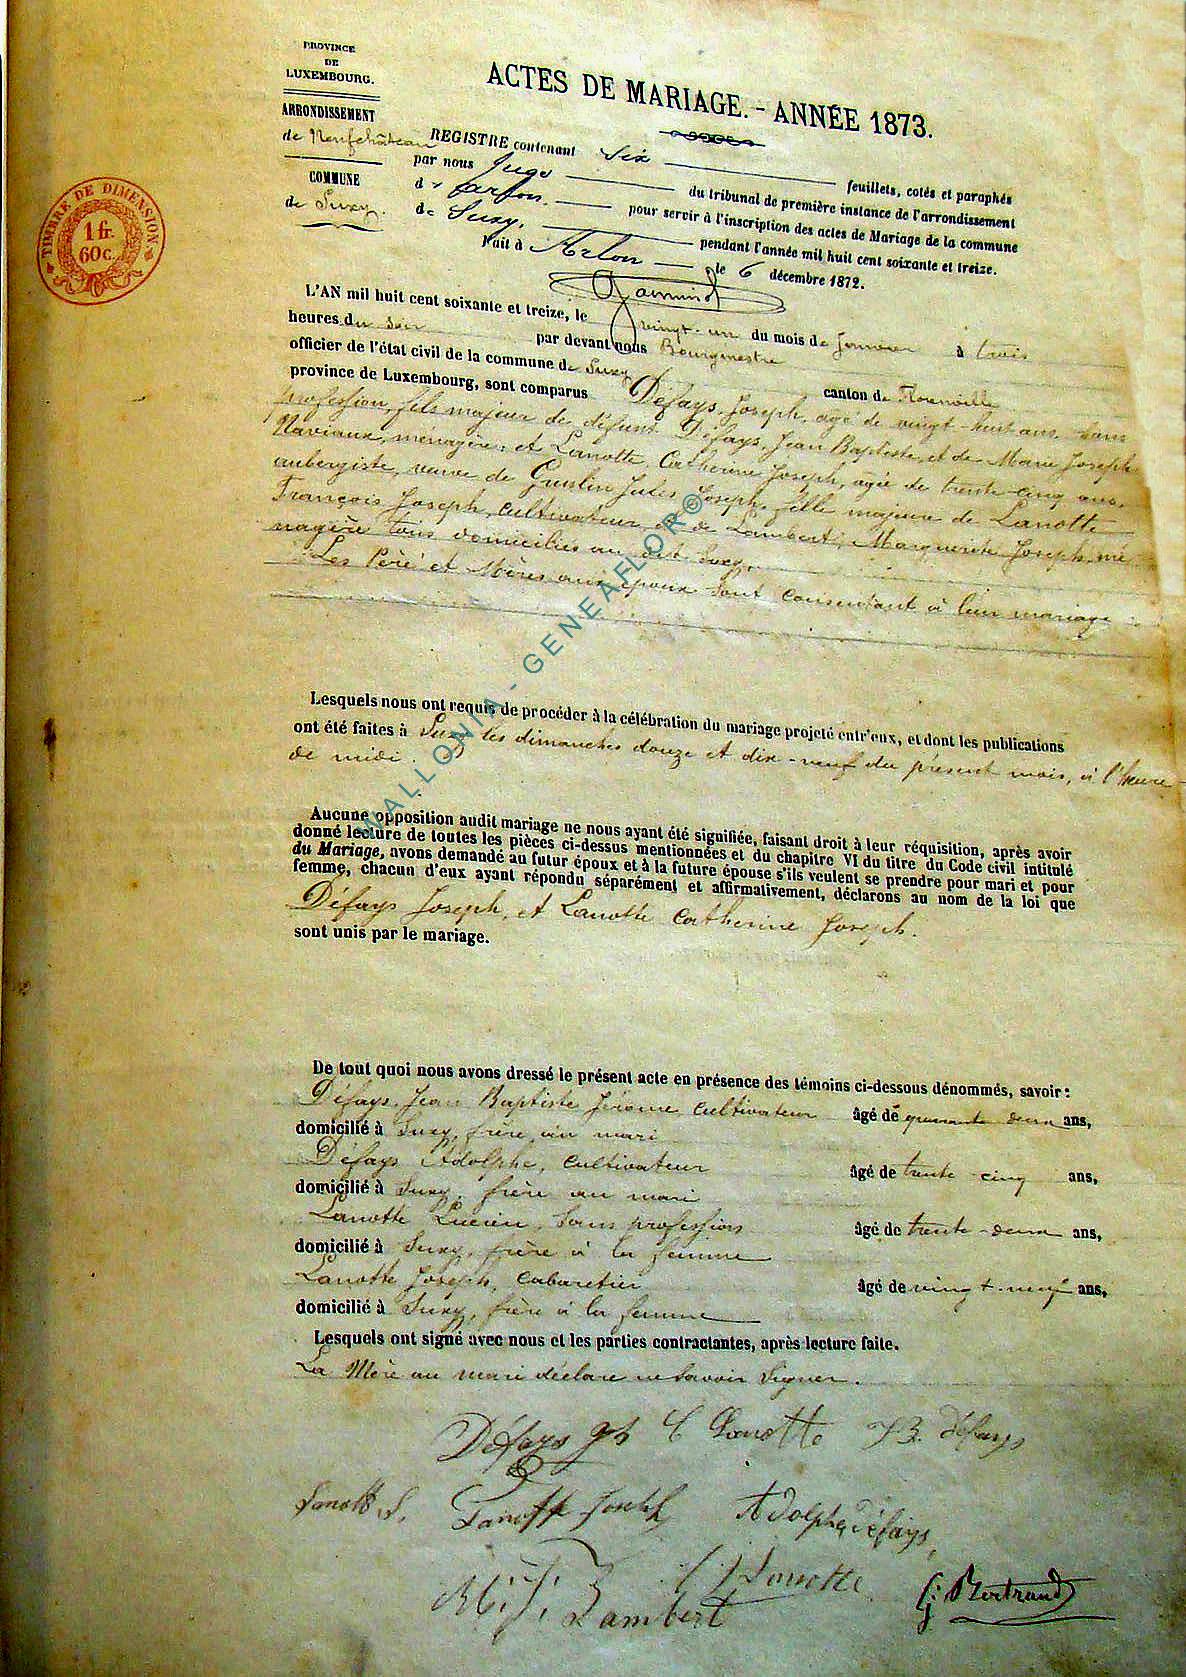 PROVINCE
DE
LUXEMBOURG.
ARRONDISSEMENT
de Neufchâteau
COMMUNE
de Suxy.
TIMBRE DE DIMENSION
1 fr.
60c.
ACTES DE MARIAGE. - ANNÉE 1873.
REGISTRE contenant Six feuillets, cotés et paraphés
par nous Juge du tribunal de première instance de l'arrondissement
d' pour servir à l'inscription des actes de Mariage de la commune
de Suxy, pendant l'année mil huit cent soixante et treize.
Fait à Arlon le 6 décembre 1872.
L'AN mil huit cent soixante et treize, le vingt-un du mois de Janvier à trois
heures du soir par devant nous Bourgmestre
officier de l'état civil de la commune de Suxy canton de
province de Luxembourg, sont comparus Défays, Joseph, agé de vingt-huit ans, sans
profession, fils majeur de défunt Défays, Jean Baptiste, et de Marie Joseph
Naviaux, ménagère, et Lanotte, Catherine Joseph, agée de trente-cinq ans,
aubergiste, veuve de Jules Joseph, fille majeure de Lanotte
François Joseph, cultivateur, et de Lambert, Marguerite Joseph, mé
nagère tous domiciliés au dit Suxy.
Les Père et Mères aux époux sont consentant à leur mariage
Lesquels nous ont requis de procéder à la célébration du mariage projeté entr'eux, et dont les publications
ont été faites à Suxy les dimanches douze et dix-neuf du présent mois, à l'heure
de midi.
Aucune opposition audit mariage ne nous ayant été signifiée, faisant droit à leur réquisition, après avoir
donné lecture de toutes les pièces ci-dessus mentionnées et du chapitre VI du titre du Code civil intitulé
du Mariage, avons demandé au futur époux et à la future épouse s'ils veulent se prendre pour mari et pour
femme, chacun d'eux ayant répondu séparément et affirmativement, déclarons au nom de la loi que
Défays Joseph, et Lanotte Catherine Joseph.
sont unis par le mariage.
De tout quoi nous avons dressé le présent acte en présence des témoins ci-dessous dénommés, savoir :
Défays, Jean Baptiste Jérome cultivateur âgé de quarante deux ans,
domicilié à Suxy, frère au mari
Défays Adolphe, cultivateur âgé de trente cinq ans,
domicilié à Suxy, frère au mari
Lanotte Lucien, sans profession âgé de trente-deux ans,
domicilié à Suxy, frère à la femme
Lanotte Joseph, cabaretier âgé de vingt-neuf ans,
domicilié à Suxy, frère à la femme
Lesquels ont signé avec nous et les parties contractantes, après lecture faite.
La Mère au mari déclare ne savoir signer.
Défays Jh C Lanotte J B. Défays
Lanotte Joseph Adolphe, Défays,
M. J. Lambert Lanotte G. Bertrand
WALLONIA - GENEAFLOR ©